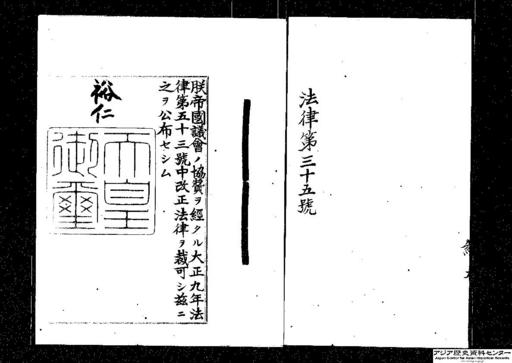 法律第三十五號
朕帝國議會ノ協贊ヲ經タル大正九年法
律第五十三號中改正法律ヲ裁可シ茲ニ
之ヲ公布セシム
裕仁
天皇
御璽
アジア歴史資料センター
Japan Center for Asian Historical Records